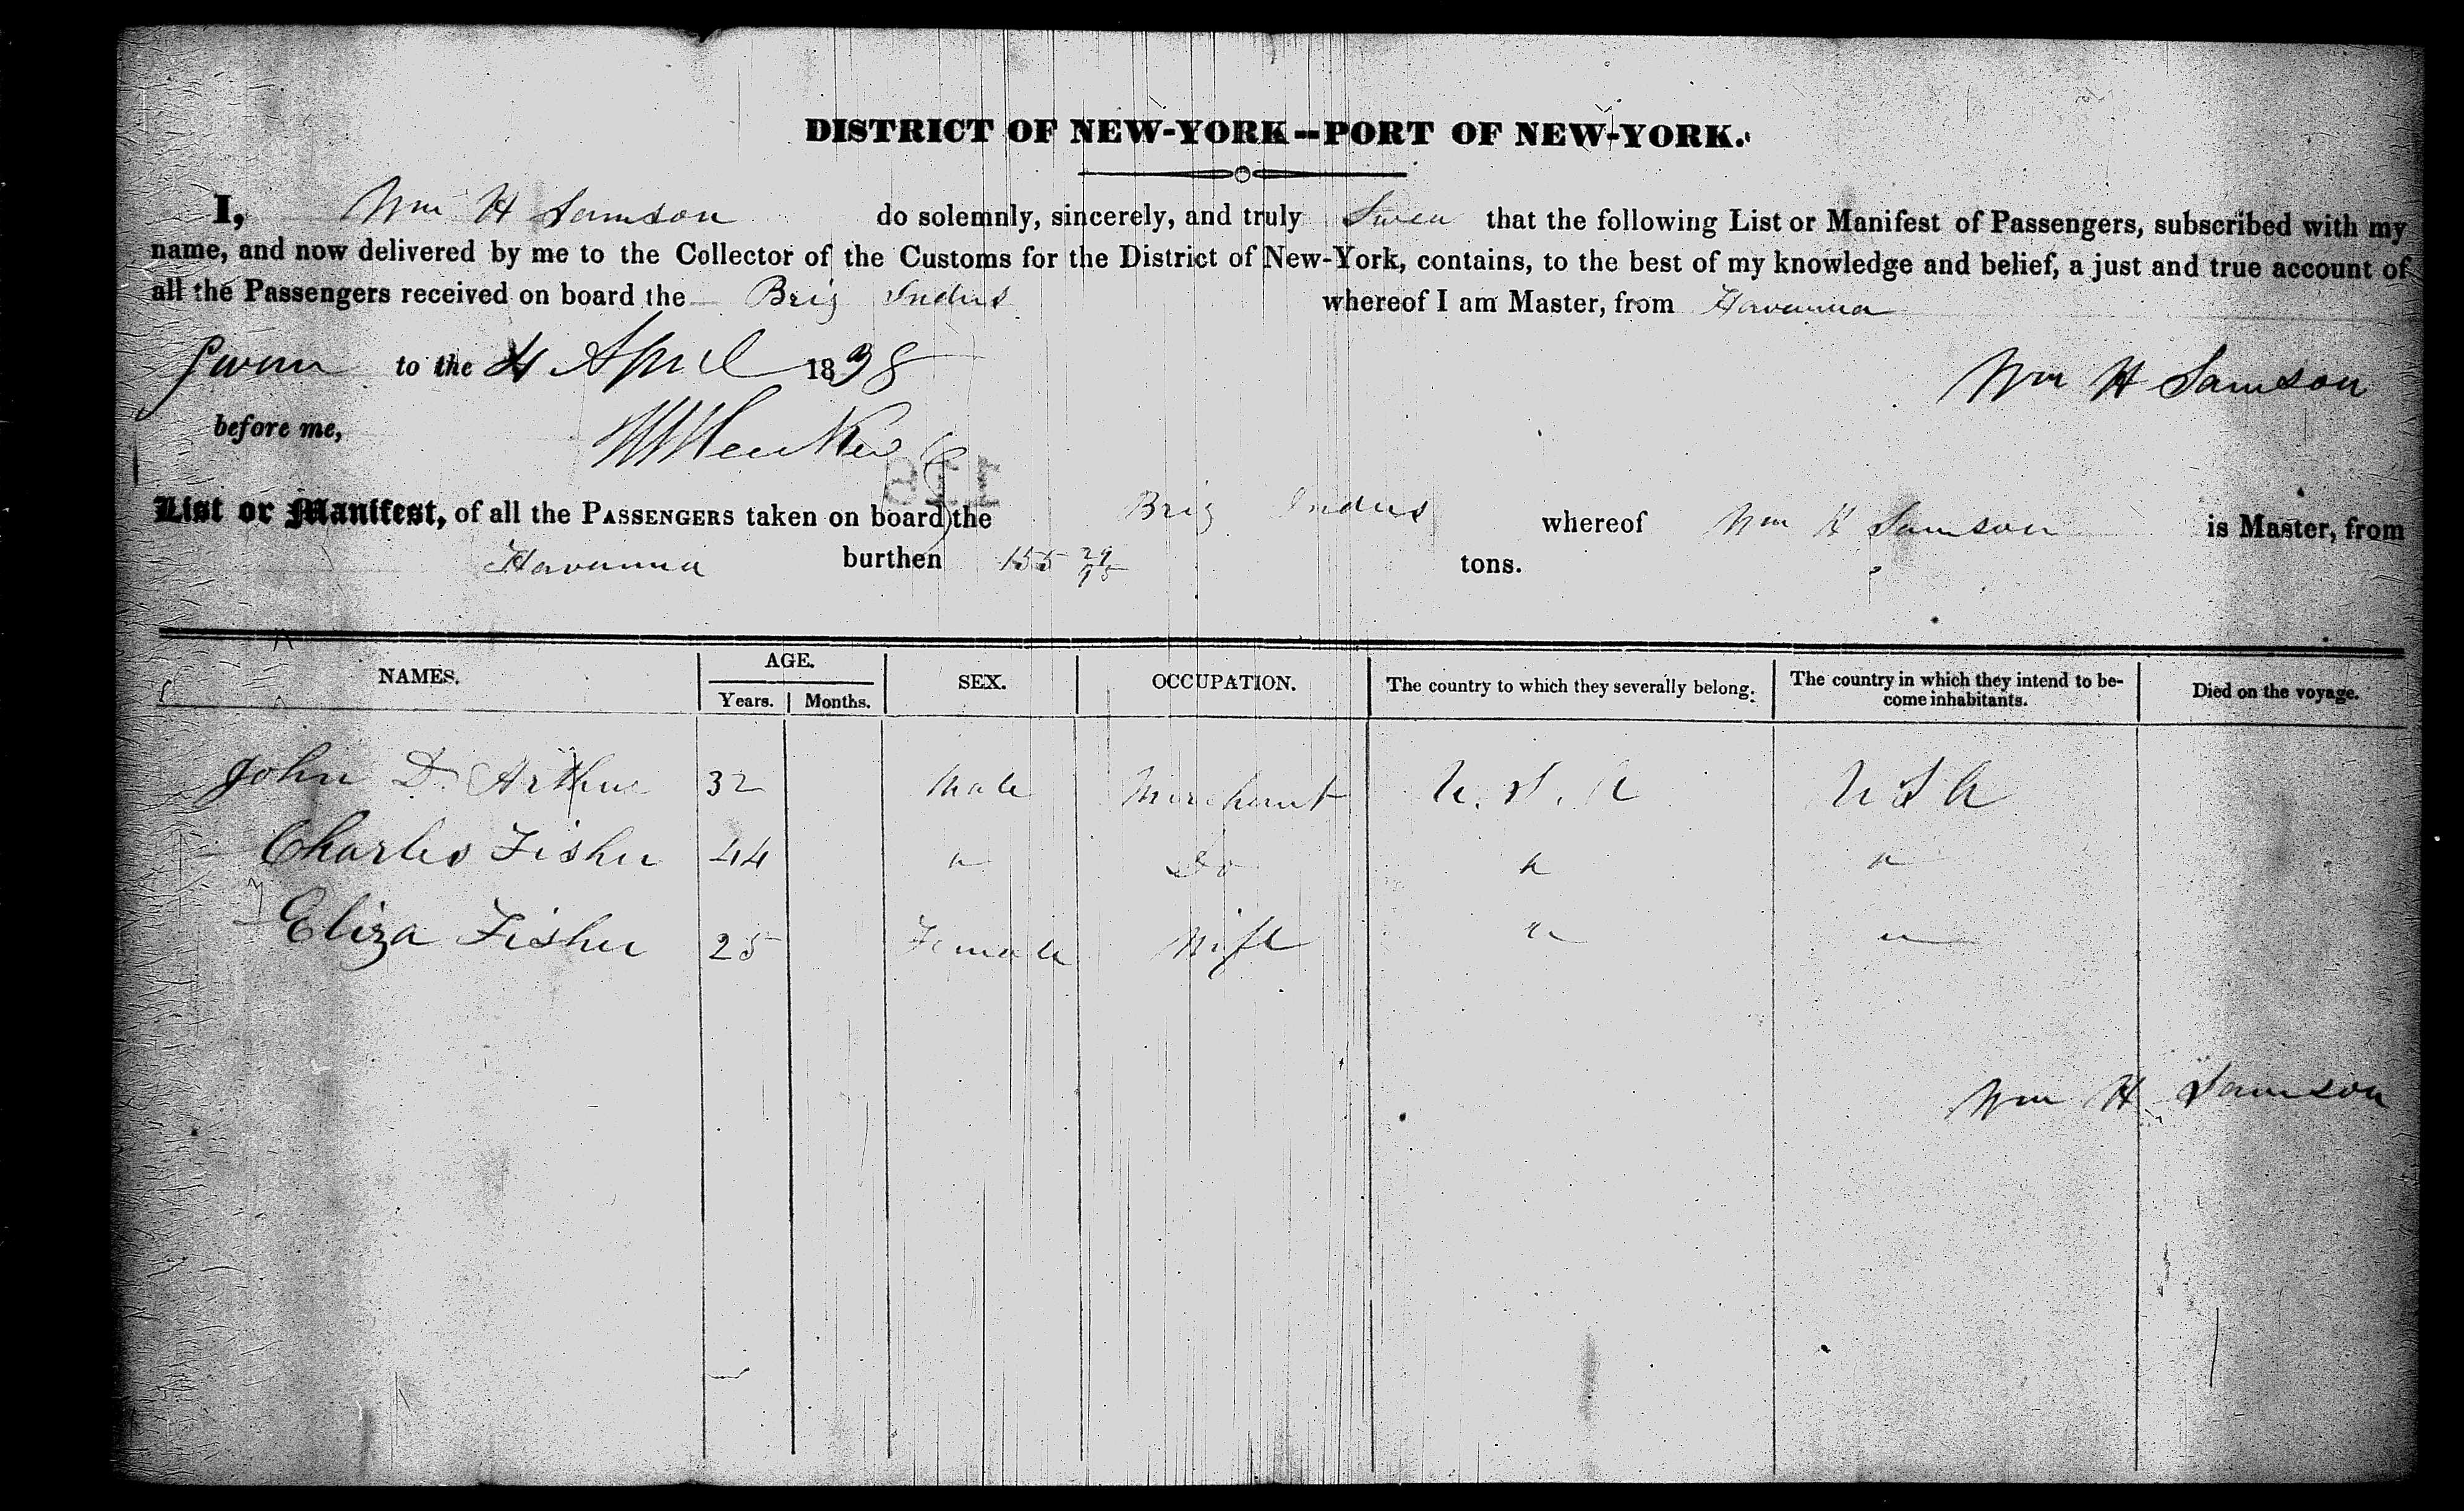 DISTRICT OF NEW-YORK--PORT OF NEW-YORK.
I, Wm H Samson do solemnly, sincerely, and truly Swea that the following List or Manifest of Passengers, subscribed with my
name, and now delivered by me to the Collector of the Customs for the District of New-York, contains, to the best of my knowledge and belief, a just and true account of
all the Passengers received on board the Brig Indus whereof I am Master, from Havanna
Sworn to the 4 April 1838 Wm H Samson
before me,
List or Manifest, of all the PASSENGERS taken on board the Brig Indus whereof Wm H Samson is Master, from
Havanna burthen 155 29/95 tons.
NAMES. AGE. SEX. OCCUPATION. The country to which they severally belong. The country in which they intend to be- Died on the voyage.
Years. Months. come inhabitants.
John D. Arthur 32 Male Merchant U. S. A U S A
Charles Fisher 44 " Do " "
Eliza Fisher 25 Female Wife " "
Wm H Samson